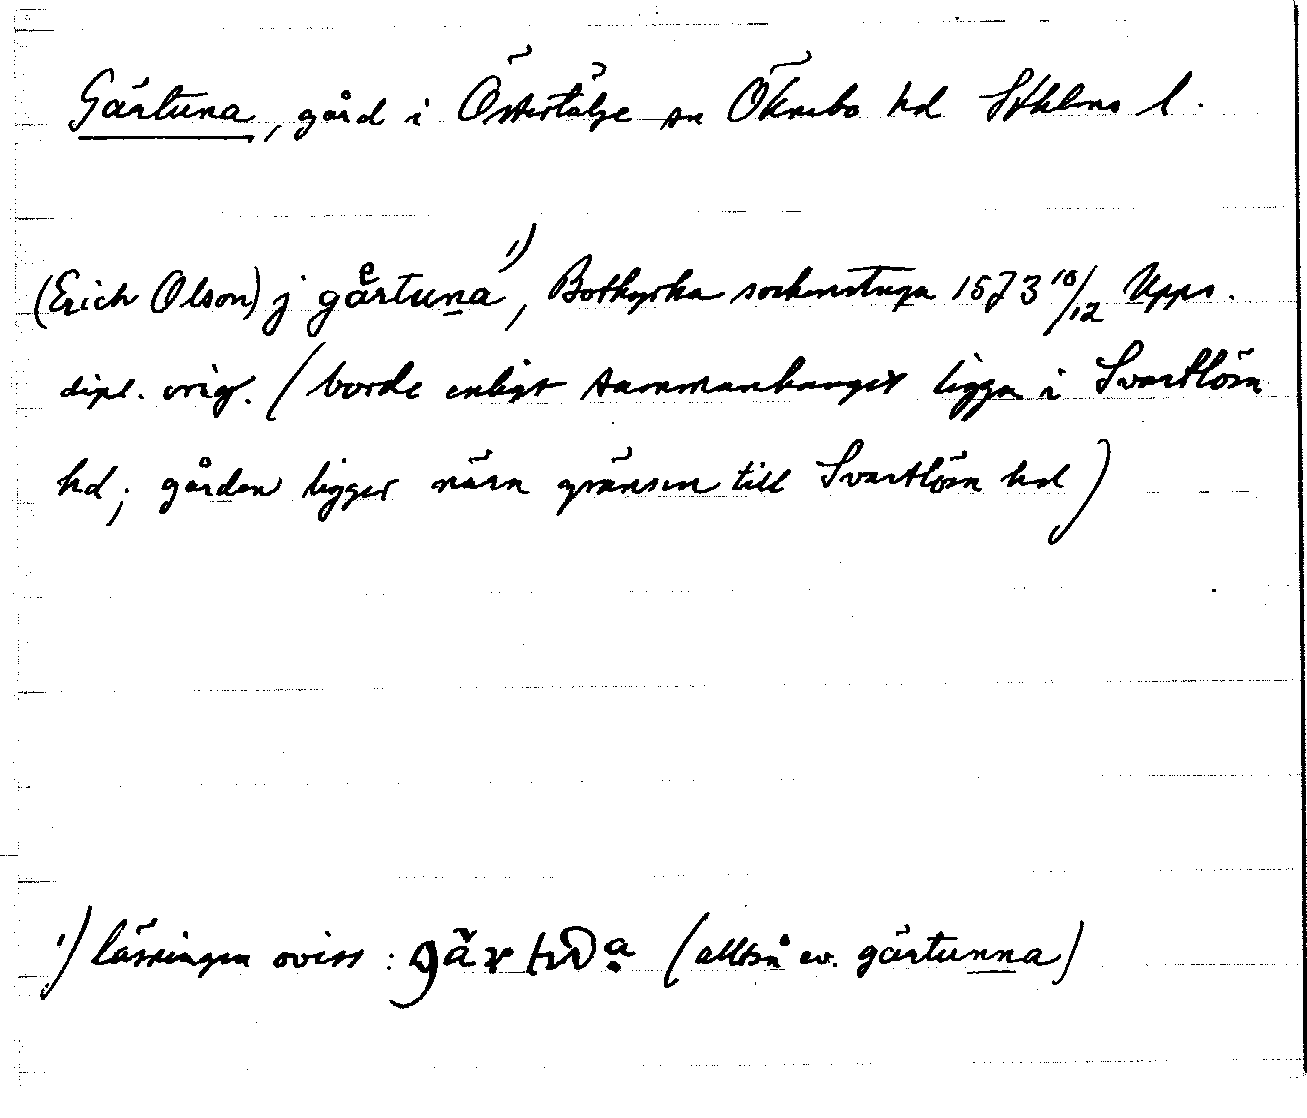 Gärtuna, gård i Östertälje sn Öknebo hd Sthlms l.
(Erich Olson) j gåͤrtuna ¹⁾, Botkyrka sockenstuga 1573 10/12 Upps.
dipl. orig. (borde enligt sammanhanget ligga i Svartlösa
hd; gården ligger nära gränsen till Svartlösa hd)
¹⁾ läsningen oviss: gärtua (alltså ev. gärtunna)